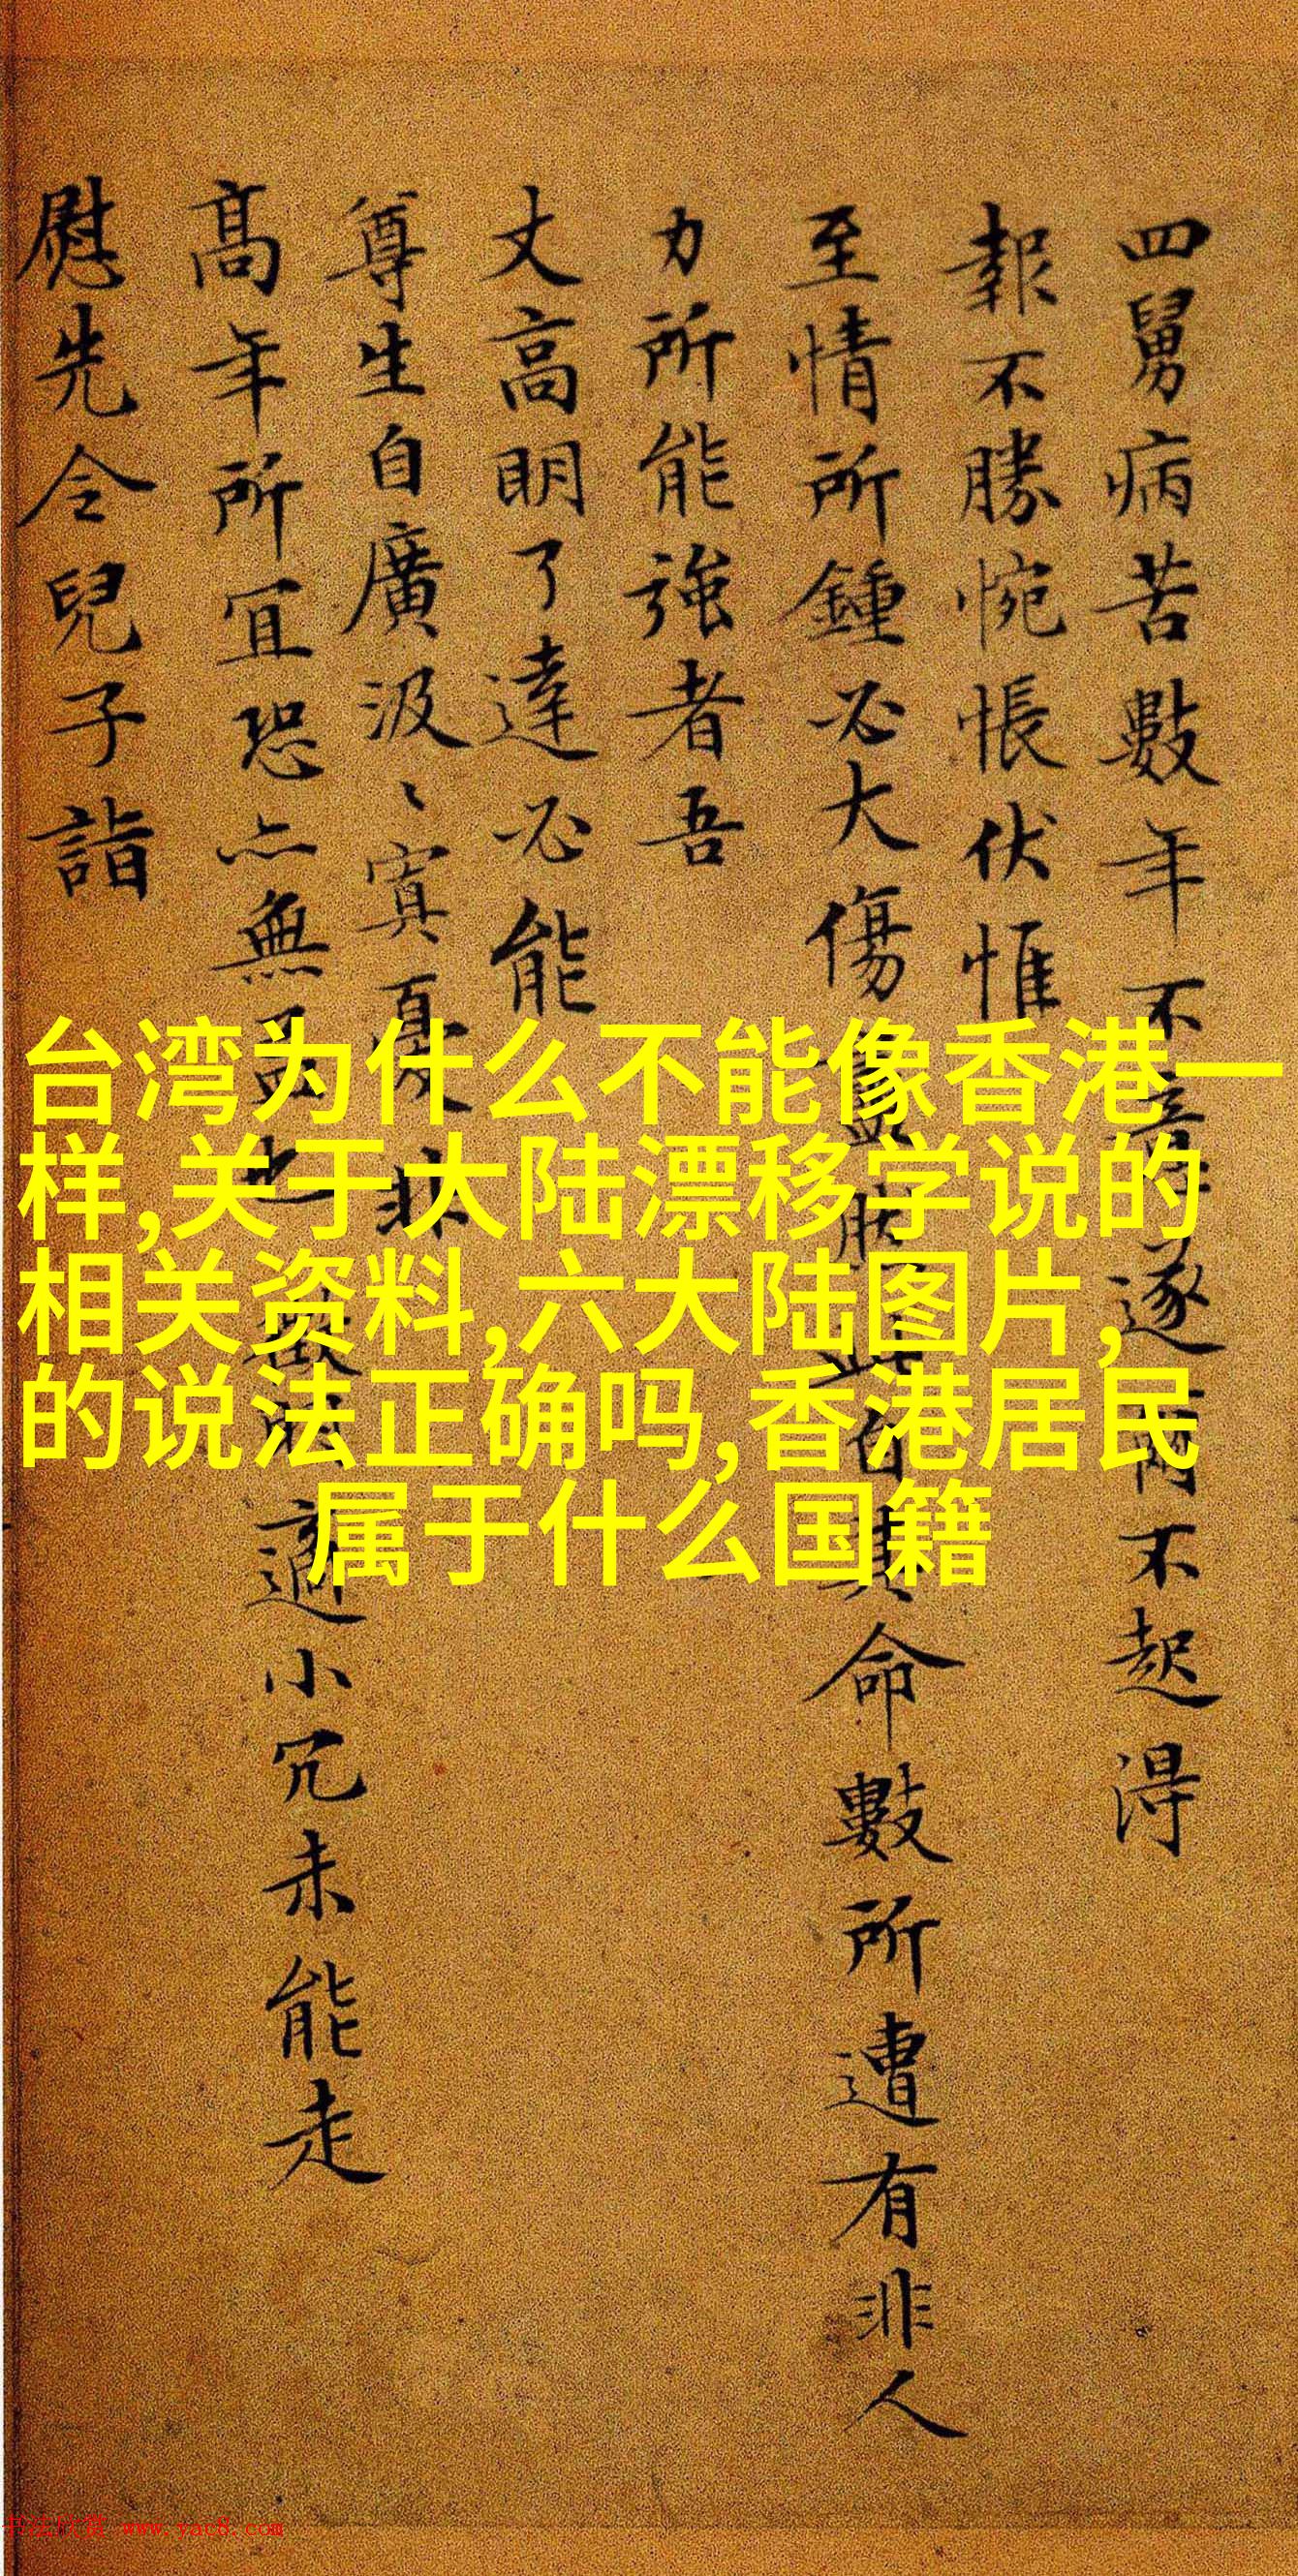 四舅病苦數年不意遂爾不起得
報不勝惋悵伏惟
至情所鍾必大傷此自其命數所遭有非人
力所能強者吾
丈高明了達必能
尊生自廣汲々寘憂非
高年所宜恐亦無益也適小冗未能走
慰先令兒子詣
台湾为什么不能像香港一
样,关于大陆漂移学说的
相关资料,六大陆图片,
的说法正确吗,香港居民
属于什么国籍
书法欣赏 www.yac8.com